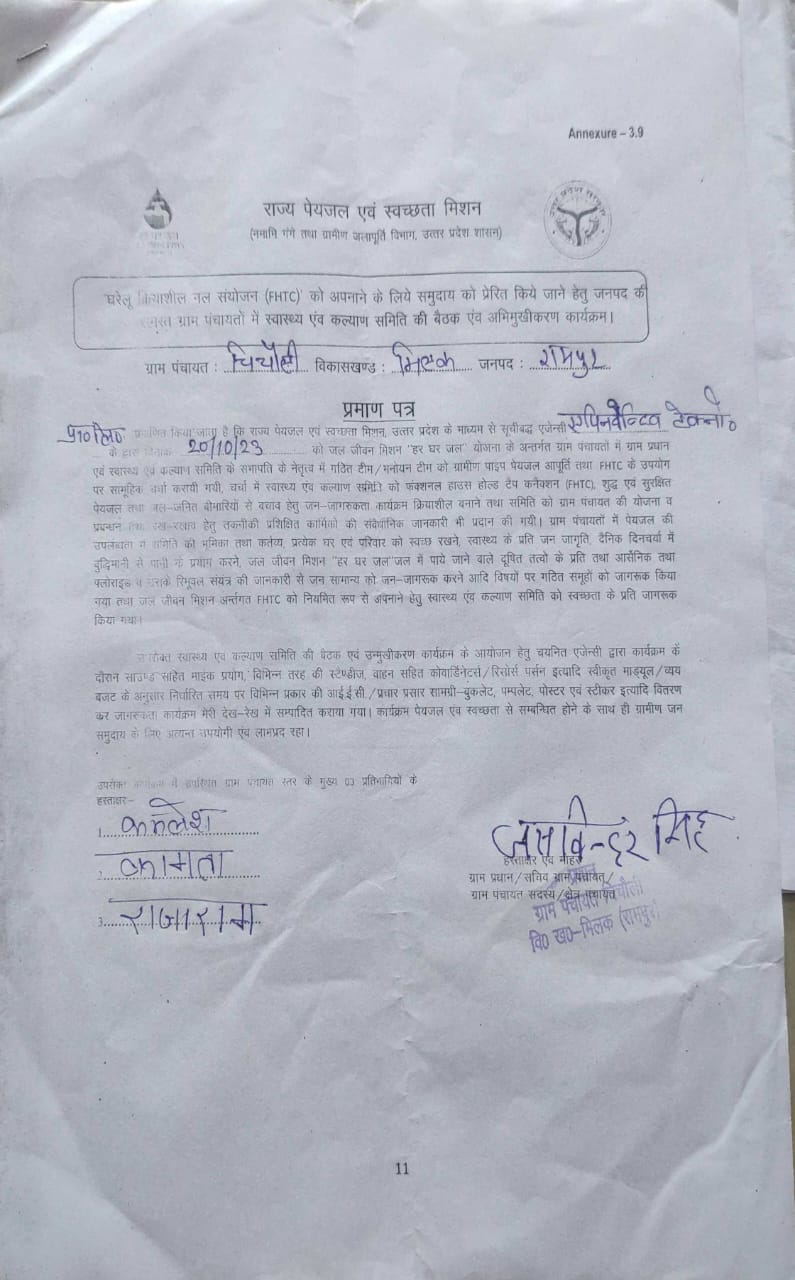 Annexure – 3.9
राज्य पेयजल एवं स्वच्छता मिशन
(नमामि गंगे तथा ग्रामीण जलापूर्ति विभाग, उत्तर प्रदेश शासन)
'घरेलू क्रियाशील नल संयोजन (FHTC)' को अपनाने के लिये समुदाय को प्रेरित किये जाने हेतु जनपद की
समस्त ग्राम पंचायतों में स्वास्थ्य एंव कल्याण समिति की बैठक एंव अभिमुखीकरण कार्यक्रम।
ग्राम पंचायत : चिचौली विकासखण्ड : मिलक जनपद : रामपुर
प्रमाण पत्र
प्रमाणित किया जाता है कि राज्य पेयजल एवं स्वच्छता मिशन, उत्तर प्रदेश के माध्यम से सूचीबद्ध एजेन्सी एपिनवेन्टिव टेक्नो०
प्रा० लि० के द्वारा दिनांक 20/10/23 को जल जीवन मिशन "हर घर जल" योजना के अन्तर्गत ग्राम पंचायतों में ग्राम प्रधान
एवं स्वास्थ्य एंव कल्याण समिति के सभापति के नेतृत्व में गठित टीम/मनोयन टीम को ग्रामीण पाइप पेयजल आपूर्ति तथा FHTC के उपयोग
पर सामूहिक चर्चा करायी गयी, चर्चा में स्वास्थ्य एंव कल्याण समिति को फंक्शनल हाउस होल्ड टेप कनैक्शन (FHTC), शुद्ध एवं सुरक्षित
पेयजल तथा जल-जनित बीमारियों से बचाव हेतु जन-जागरूकता कार्यक्रम क्रियाशील बनाने तथा समिति को ग्राम पंचायत की योजना व
प्रबन्धन तथा रख-रखाव हेतु तकनीकी प्रशिक्षित कार्मिकों की संवैधानिक जानकारी भी प्रदान की गयी। ग्राम पंचायतों में पेयजल की
उपलब्धता में समिति की भूमिका तथा कर्तव्य, प्रत्येक घर एवं परिवार को स्वच्छ रखने, स्वास्थ्य के प्रति जन जागृति, दैनिक दिनचर्या में
बुद्धिमानी से पानी के प्रयोग करने, जल जीवन मिशन "हर घर जल"जल में पाये जाने वाले दूषित तत्वो के प्रति तथा आर्सेनिक तथा
फ्लोराइड व उसके रिमूवल संयंत्र की जानकारी से जन सामान्य को जन-जागरूक करने आदि विषयों पर गठित समूहों को जागरूक किया
गया तथा जल जीवन मिशन अर्न्तगत FHTC को नियमित रूप से अपनाने हेतु स्वास्थ्य एंव कल्याण समिति को स्वच्छता के प्रति जागरूक
किया गया।
उपरोक्त स्वास्थ्य एंव कल्याण समिति की बैठक एवं उन्मुखीकरण कार्यक्रम के आयोजन हेतु चयनित एजेन्सी द्वारा कार्यक्रम के
दौरान साउण्ड सहित माइक प्रयोग, विभिन्न तरह की स्टैण्डीज, वाहन सहित कोवार्डिनेटर्स/रिसोर्स पर्सन इत्यादि स्वीकृत माड्यूल/व्यय
बजट के अनुसार निर्धारित समय पर विभिन्न प्रकार की आई.ई.सी./प्रचार प्रसार सामग्री-बुकलेट, पम्पलेट, पोस्टर एवं स्टीकर इत्यादि वितरण
कर जागरूकता कार्यक्रम मेरी देख-रेख में सम्पादित कराया गया। कार्यक्रम पेयजल एंव स्वच्छता से सम्बन्धित होने के साथ ही ग्रामीण जन
समुदाय के लिए अत्यन्त उपयोगी एंव लाभप्रद रहा।
उपरोक्त कार्यक्रम में उपस्थित ग्राम पंचायत स्तर के मुख्य 03 प्रतिभागियों के
हस्ताक्षर:-
1. कमलेश
2. कामता
3. राजाराम
जसविन्दर सिंह
हस्ताक्षर एंव मोहर
ग्राम प्रधान/सचिव ग्राम पंचायत/
ग्राम पंचायत सदस्य/क्षेत्र पंचायत
ग्राम पंचायत चिचौली
वि० ख०-मिलक (रामपुर)
11